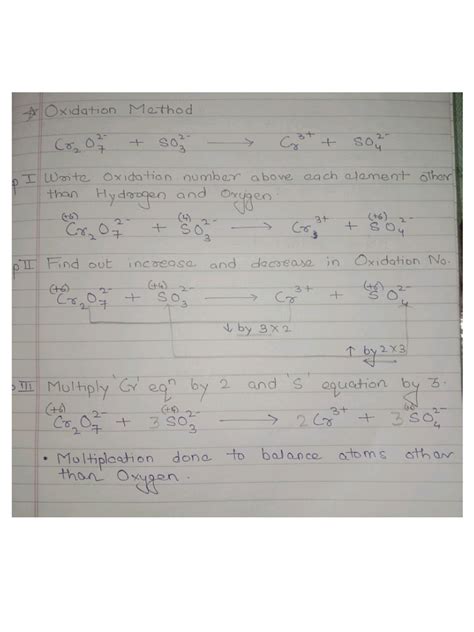 ☆ Oxidation Method
Cr₂O₇²⁻ + SO₃²⁻ ⟶ Cr³⁺ + SO₄²⁻
p I Write Oxidation number above each element other
than Hydrogen and Oxygen.
(+6) (4) (+6)
Cr₂O₇²⁻ + SO₃²⁻ ⟶ Cr³⁺ + SO₄²⁻
p II Find out increase and decrease in Oxidation No.
(+6) (+4) (+6)
Cr₂O₇²⁻ + SO₃²⁻ ⟶ Cr³⁺ + SO₄²⁻
↓ by 3×2
↑ by 2×3
p III Multiply 'Cr' eqⁿ by 2 and 'S' equation by 3.
(+6)
Cr₂O₇²⁻ + 3SO₃²⁻ ⟶ 2Cr³⁺ + 3SO₄²⁻
• Multiplcation done to balance atoms other
than Oxygen.